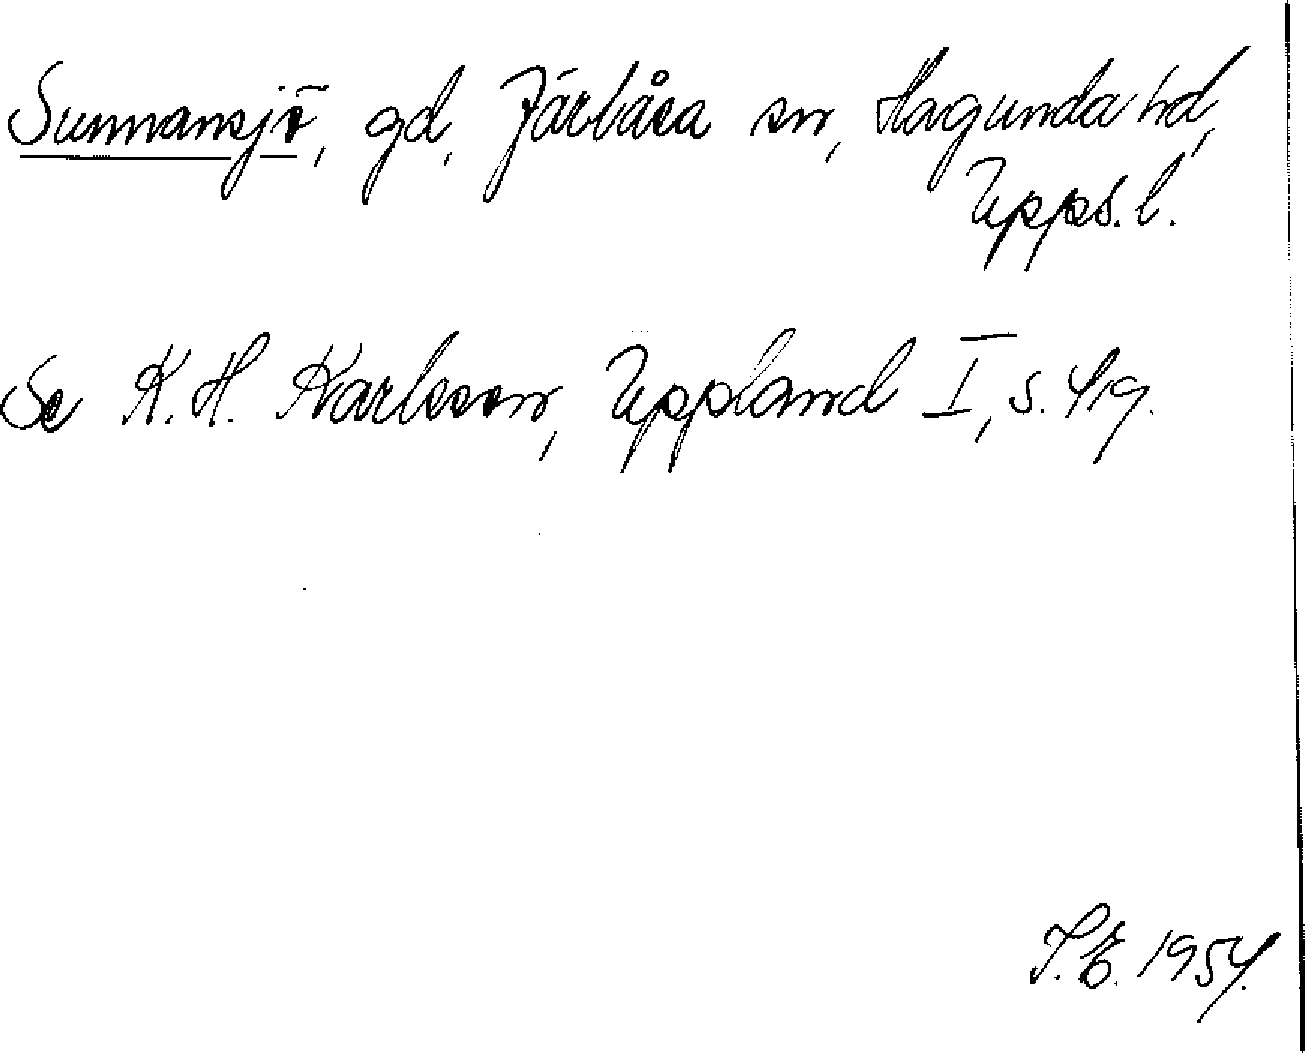 Sunnansjö, gd, Järlåsa sn, Hagunda hd,
Upps. l.
Se K. H. Karlsson, Uppland I, s. 419.
S. E. 1954.